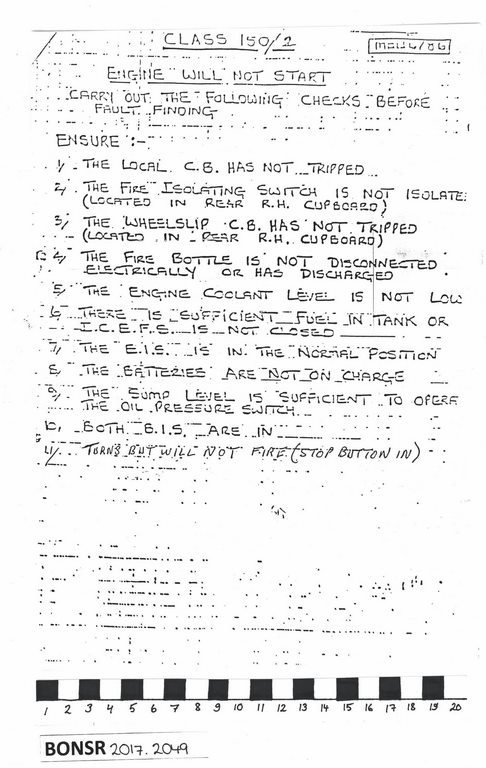 CLASS 150/2
ENGINE WILL NOT START
CARRY OUT THE FOLLOWING CHECKS BEFORE
FAULT FINDING
ENSURE :-
1/ THE LOCAL C.B. HAS NOT TRIPPED
2/ THE FIRE ISOLATING SWITCH IS NOT ISOLATE
(LOCATED IN REAR R.H. CUPBOARD)
3/ THE WHEELSLIP C.B. HAS NOT TRIPPED
(LOCATED IN REAR R.H. CUPBOARD)
4/ THE FIRE BOTTLE IS NOT DISCONNECTED
ELECTRICALLY OR HAS DISCHARGED
5/ THE ENGINE COOLANT LEVEL IS NOT LOW
6/ THERE IS SUFFICIENT FUEL IN TANK OR
I.C.E.F.S. IS NOT CLOSED
7/ THE E.I.S. IS IN THE NORMAL POSITION
8/ THE BATTERIES ARE NOT ON CHARGE
9/ THE SUMP LEVEL IS SUFFICIENT TO OPERA
THE OIL PRESSURE SWITCH
10/ BOTH B.I.S. ARE IN
11/ TURNS BUT WILL NOT FIRE (STOP BUTTON IN)
1 2 3 4 5 6 7 8 9 10 11 12 13 14 15 16 17 18 19 20
BONSR 2017.2049